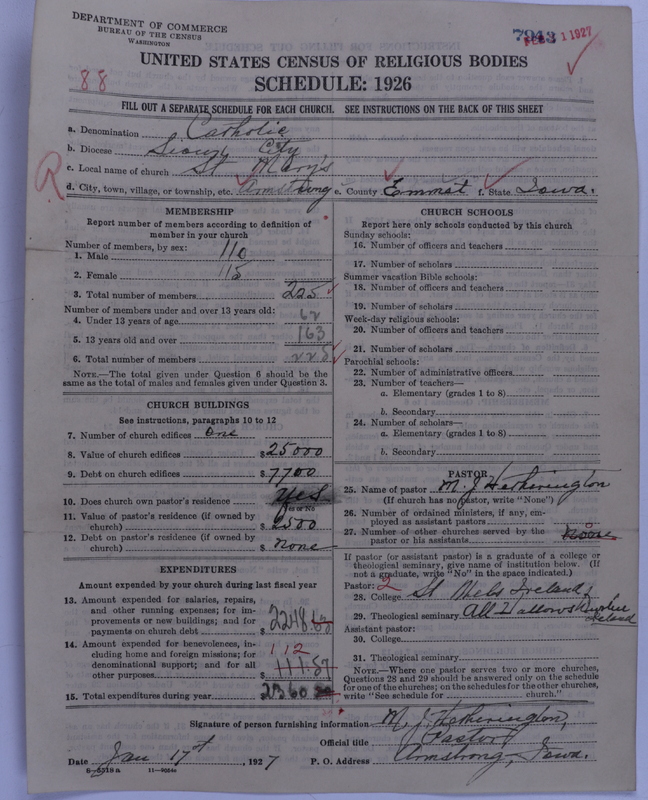 DEPARTMENT OF COMMERCE
BUREAU OF THE CENSUS
WASHINGTON
7943 FEB 11 1927
UNITED STATES CENSUS OF RELIGIOUS BODIES
88
SCHEDULE: 1926
FILL OUT A SEPARATE SCHEDULE FOR EACH CHURCH. SEE INSTRUCTIONS ON THE BACK OF THIS SHEET
a. Denomination Catholic
b. Diocese Sioux City
c. Local name of church St Mary's
R
d. City, town, village, or township, etc. Armstrong e. County Emmet f. State Iowa.
MEMBERSHIP
Report number of members according to definition of
member in your church
Number of members, by sex:
1. Male 110
2. Female 115
3. Total number of members 225
Number of members under and over 13 years old:
4. Under 13 years of age 62
5. 13 years old and over 163
6. Total number of members 225
NOTE.—The total given under Question 6 should be the
same as the total of males and females given under Question 3.
CHURCH BUILDINGS
See instructions, paragraphs 10 to 12
7. Number of church edifices One
8. Value of church edifices $25000
9. Debt on church edifices $7700
10. Does church own pastor's residence Yes
Yes or No
11. Value of pastor's residence (if owned by
church) $2500
12. Debt on pastor's residence (if owned by
church) $ None
EXPENDITURES
Amount expended by your church during last fiscal year
13. Amount expended for salaries, repairs,
and other running expenses; for im-
provements or new buildings; and for
payments on church debt $2248.
14. Amount expended for benevolences, in-
cluding home and foreign missions; for
denominational support; and for all
other purposes 112
111.57
15. Total expenditures during year $2360
CHURCH SCHOOLS
Report here only schools conducted by this church
Sunday schools:
16. Number of officers and teachers
17. Number of scholars
Summer vacation Bible schools:
18. Number of officers and teachers
19. Number of scholars
Week-day religious schools:
20. Number of officers and teachers
21. Number of scholars
Parochial schools:
22. Number of administrative officers
23. Number of teachers—
a. Elementary (grades 1 to 8)
b. Secondary
24. Number of scholars—
a. Elementary (grades 1 to 8)
b. Secondary
PASTOR
25. Name of pastor M. J. Hetherington
(If church has no pastor, write "None")
26. Number of ordained ministers, if any, em-
ployed as assistant pastors
27. Number of other churches served by the
pastor or his assistants 0
If pastor (or assistant pastor) is a graduate of a college or
theological seminary, give name of institution below. (If
not a graduate, write "No" in the space indicated.)
Pastor: 2
28. College St Mels Ireland
29. Theological seminary All Hallows Ireland
Assistant pastor:
30. College
31. Theological seminary
NOTE.—Where one pastor serves two or more churches,
Questions 28 and 29 should be answered only on the schedule
for one of the churches; on the schedules for the other churches,
write "See schedule for church."
Signature of person furnishing information M. J. Hetherington,
Official title Pastor
Date Jan 17th, 1927 P. O. Address Armstrong, Iowa.